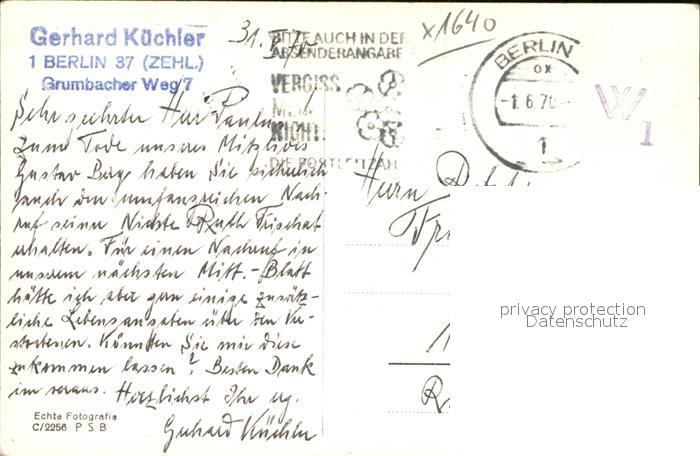 Gerhard Küchler
1 BERLIN 37 (ZEHL.)
Grumbacher Weg 7
31.
BITTE AUCH IN DER
ABSENDERANGABE
VERGISS
MEIN
NICHT
DIE POSTLEITZAHL
x1640
BERLIN
ox
-1.6.70-
1
W
1
Sehr geehrter Herr
zum Tode unseres Mitgliedes
Gustav Berg haben Sie sicherlich
auch den umfangreichen Nach-
ruf seiner Nichte Ruth
erhalten. Für einen Nachruf in
unserem nächsten Mitt.-Blatt
hätte ich aber gern einige zusätz-
liche Lebensangaben über den Ver-
storbenen. Könnten Sie mir diese
zukommen lassen? Besten Dank
im voraus. Herzlichst Ihr erg.
Gerhard Küchler
Herrn
Echte Fotografie
C/2256 P S B
privacy protection
Datenschutz